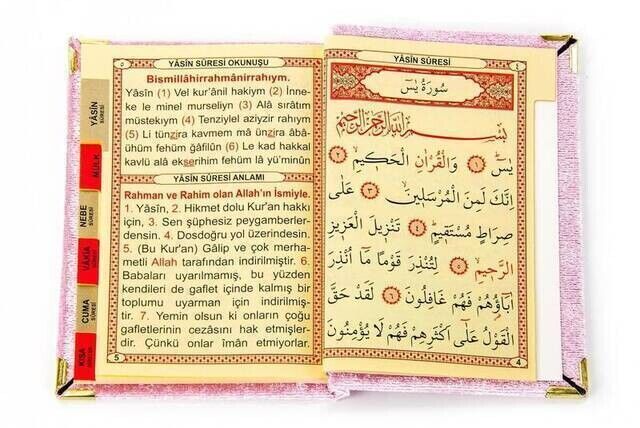 YÂSİN SÛRESİ OKUNUŞU
Bismillâhirrahmânirrahıym.
Yâsîn (1) Vel kur'ânil hakiym (2) İnne-
ke le minel murseliyn (3) Alâ sırâtım
müstekıym (4) Tenziylel aziyzir rahıym
(5) Li tünzira kavmem mâ ünzira âbâ-
ühüm fehüm ğâfilûn (6) Le kad hakkal
kavlü alâ ekserihim fehüm lâ yü'minûn
YÂSİN SÛRESİ ANLAMI
Rahman ve Rahim olan Allah'ın İsmiyle.
1. Yâsîn, 2. Hikmet dolu Kur'an hakkı
için, 3. Sen şüphesiz peygamberler-
densin. 4. Dosdoğru yol üzerindesin.
5. (Bu Kur'an) Gâlip ve çok merha-
metli Allah tarafından indirilmiştir. 6.
Babaları uyarılmamış, bu yüzden
kendileri de gaflet içinde kalmış bir
toplumu uyarman için indirilmiş-
tir. 7. Yemin olsun ki onların çoğu
gafletlerinin cezasını hak etmişler-
dir. Çünkü onlar îmân etmiyorlar.
5
YÂSİN
SÛRESİ
MÜLK
NEBE
SÛRESİ
VÂKIA
CUMA
SÛRESİ
KISA
YÂSİN SÛRESİ
٤
سُورَةُ يٰسٓ
بِسْمِ اللّٰهِ الرَّحْمٰنِ الرَّحِيمِ
يٰسٓ ١ وَالْقُرْاٰنِ الْحَكِيمِ ٢
اِنَّكَ لَمِنَ الْمُرْسَلِينَ ٣ عَلٰى
صِرَاطٍ مُسْتَقِيمٍ ٤ تَنْزِيلَ الْعَزِيزِ
الرَّحِيمِ ٥ لِتُنْذِرَ قَوْمًا مَٓا اُنْذِرَ
اٰبَٓاؤُهُمْ فَهُمْ غَافِلُونَ ٦ لَقَدْ حَقَّ
الْقَوْلُ عَلٰٓى اَكْثَرِهِمْ فَهُمْ لَا يُؤْمِنُونَ
4